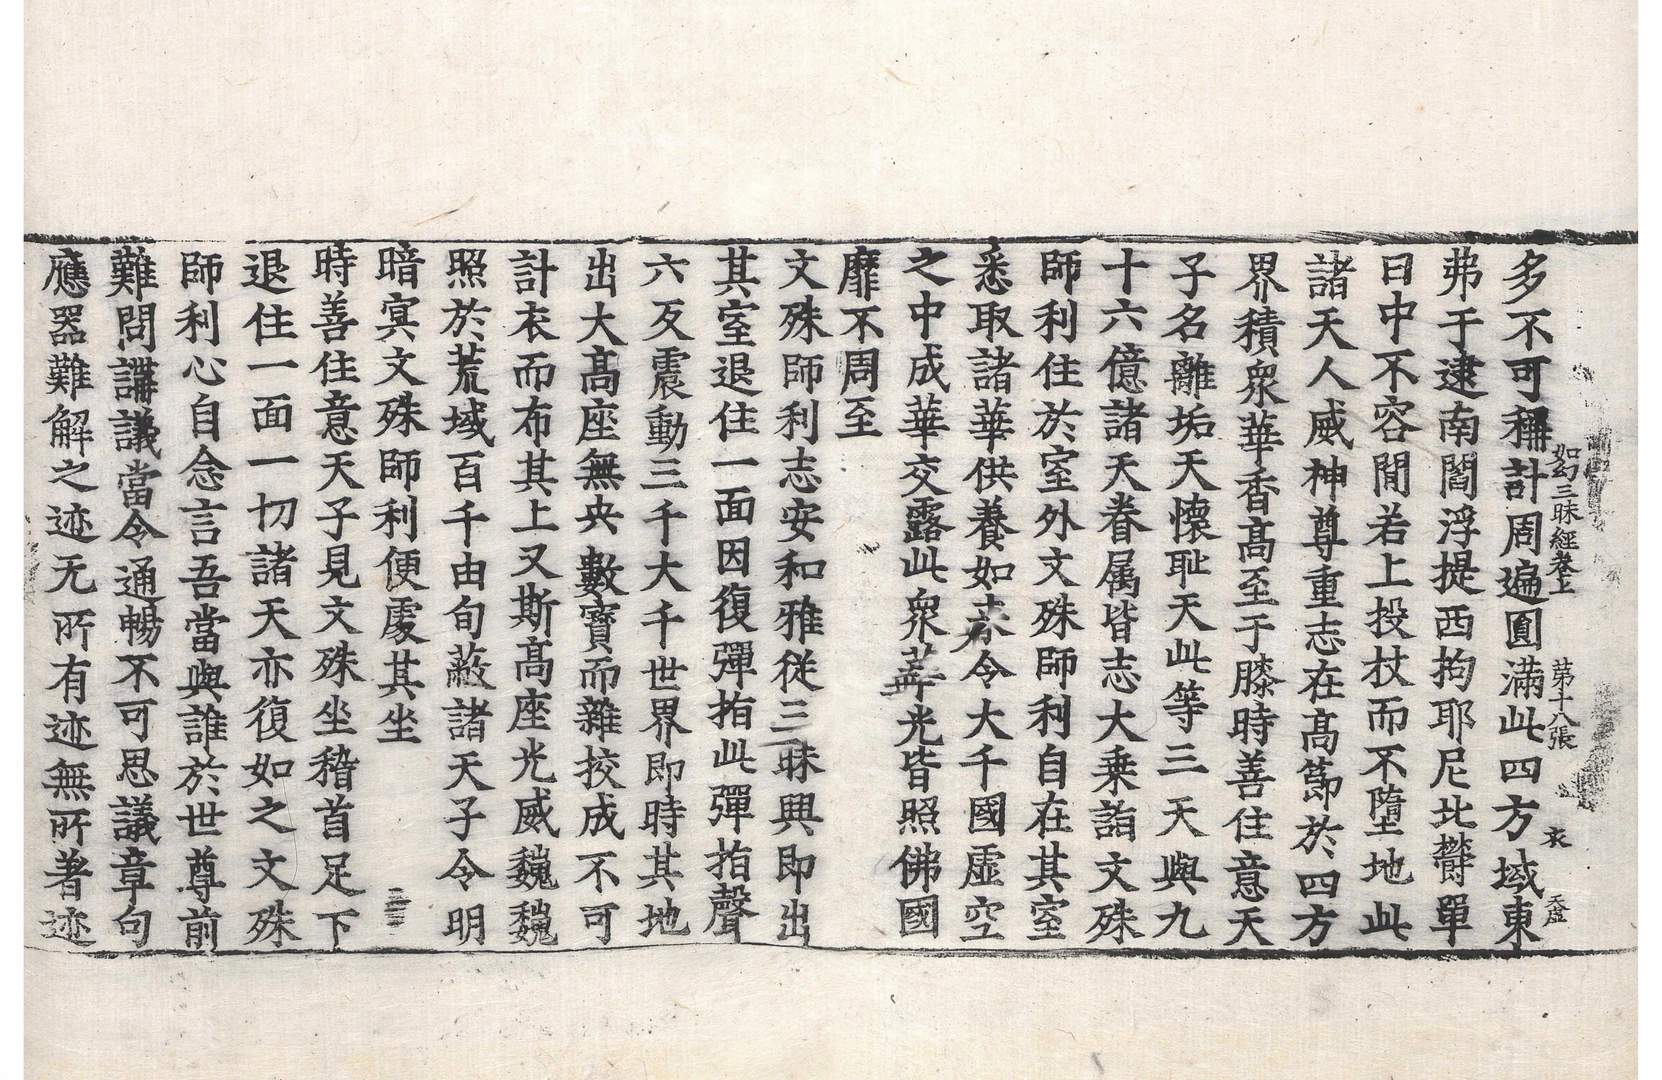 如幻三昧經卷上 第十八張 衣 天虚
多不可稱計周遍圓滿此四方域東
弗于逮南閻浮提西拘耶尼北欝單
曰中不容閒若上投杖而不墮地此
諸天人威神尊重志在高節於四方
界積衆華香高至于膝時善住意天
子名離垢天懷耻天此等三天與九
十六億諸天眷属皆志大乗詣文殊
師利住於室外文殊師利自在其室
悉取諸華供養如來令大千國虚空
之中成華交露此衆華光皆照佛國
靡不周至
文殊師利志安和雅従三昧興即出
其室退住一面因復彈指此彈指聲
六反震動三千大千世界即時其地
出大高座無央數寶而雜挍成不可
計衣而布其上又斯高座光威巍巍
照於荒域百千由旬蔽諸天子令明
暗冥文殊師利便處其坐
時善住意天子見文殊坐稽首足下
退住一面一切諸天亦復如之文殊
師利心自念言吾當與誰於世尊前
難問講議當令通暢不可思議章句
應器難解之迹无所有迹無所著迹